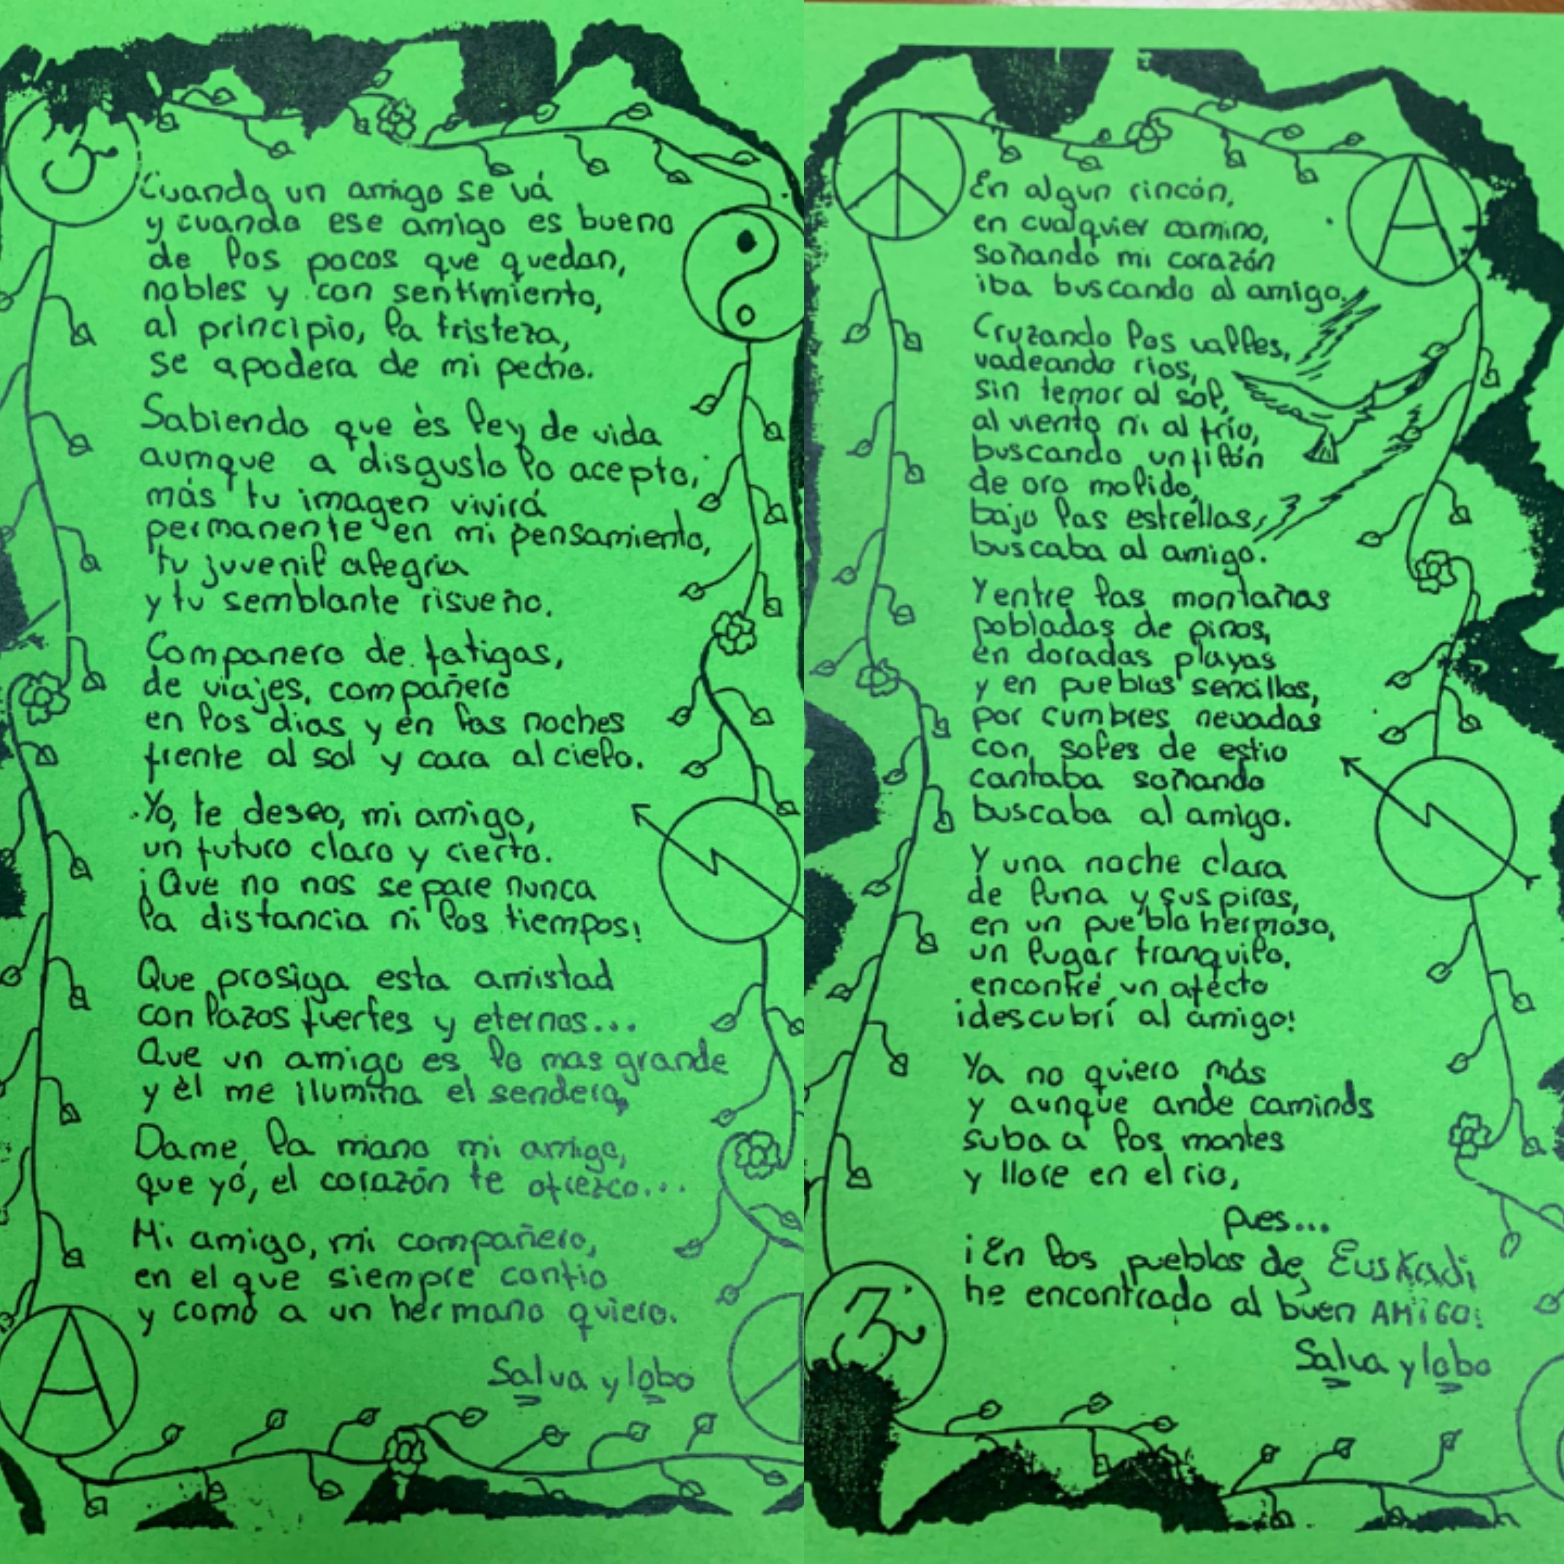 Cuando un amigo se vá
y cuando ese amigo es bueno
de los pocos que quedan,
nobles y con sentimiento,
al principio, la tristeza,
se apodera de mi pecho.
Sabiendo que ès ley de vida
aunque a disgusto lo acepto,
más tu imagen vivirá
permanente en mi pensamiento,
tu juvenil alegria
y tu semblante risueño.
Companero de fatigas,
de viajes, compañero
en los dias y en las noches
frente al sol y cara al cielo.
Yo, te deseo, mi amigo,
un futuro claro y cierto.
¡Que no nos separe nunca
la distancia ni los tiempos!
Que prosiga esta amistad
con lazos fuertes y eternos...
Que un amigo es lo mas grande
y èl me ilumina el sendero,
Dame, la mano mi amigo,
que yó, el corazón te ofrezco...
Mi amigo, mi compañero,
en el que siempre confio
y como a un hermano quiero.
Salva y lobo
A
En algun rincón,
en cualquier camino,
soñando mi corazón
iba buscando al amigo.
A
Cruzando los valles,
vadeando rios,
sin temor al sol,
al viento ni al frio,
buscando un filón
de oro molido,
bajo las estrellas,
buscaba al amigo.
Y entre las montañas
pobladas de pinos,
en doradas playas
y en pueblos sencillos,
por cumbres nevadas
con soles de estio
cantaba soñando
buscaba al amigo.
Y una noche clara
de luna y suspiros,
en un pueblo hermoso,
un lugar tranquilo,
encontré, un afecto
¡descubrí al amigo!
Ya no quiero más
y aunque ande caminos
suba a los montes
y llore en el rio,
pues...
¡En los pueblos de Euskadi
he encontrado al buen AMiGO!
Salva y lobo